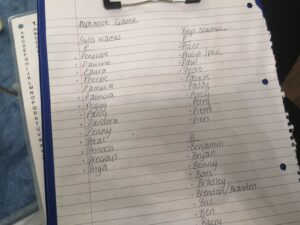 Alphabet Game
Girls Names
P
Penelope
Pauline
Paula
Phoebe
Pamela
Patricia
Peggy
Pansy
Pandora
Penny
Petal
Princess
Precious
Priya
Boys Names
Peter
Philip
Paul
Pedro
Patrick
Paddy
Percy
Perry
Pierre
B
Benjamin
Bryan
Benny
Boris
Bradley
Brendan/Brandon
Ben
Barry